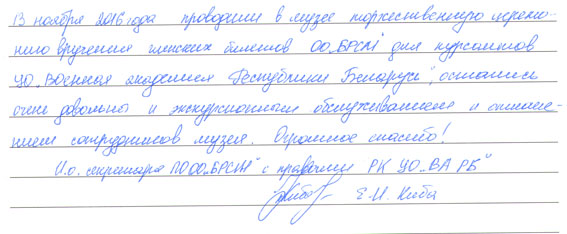 13 ноября 2016 года проводили в музее торжественную церемо-
нию вручения членских билетов ОО „БРСМ" для курсантов
УО „Военная академия Республики Беларусь", остались
очень довольны и экскурсионным обслуживанием и отноше-
нием сотрудников музея. Огромное спасибо!
И.о. секретаря ПО ОО „БРСМ" с правами РК УО „ВА РБ"
Е.И. Киба